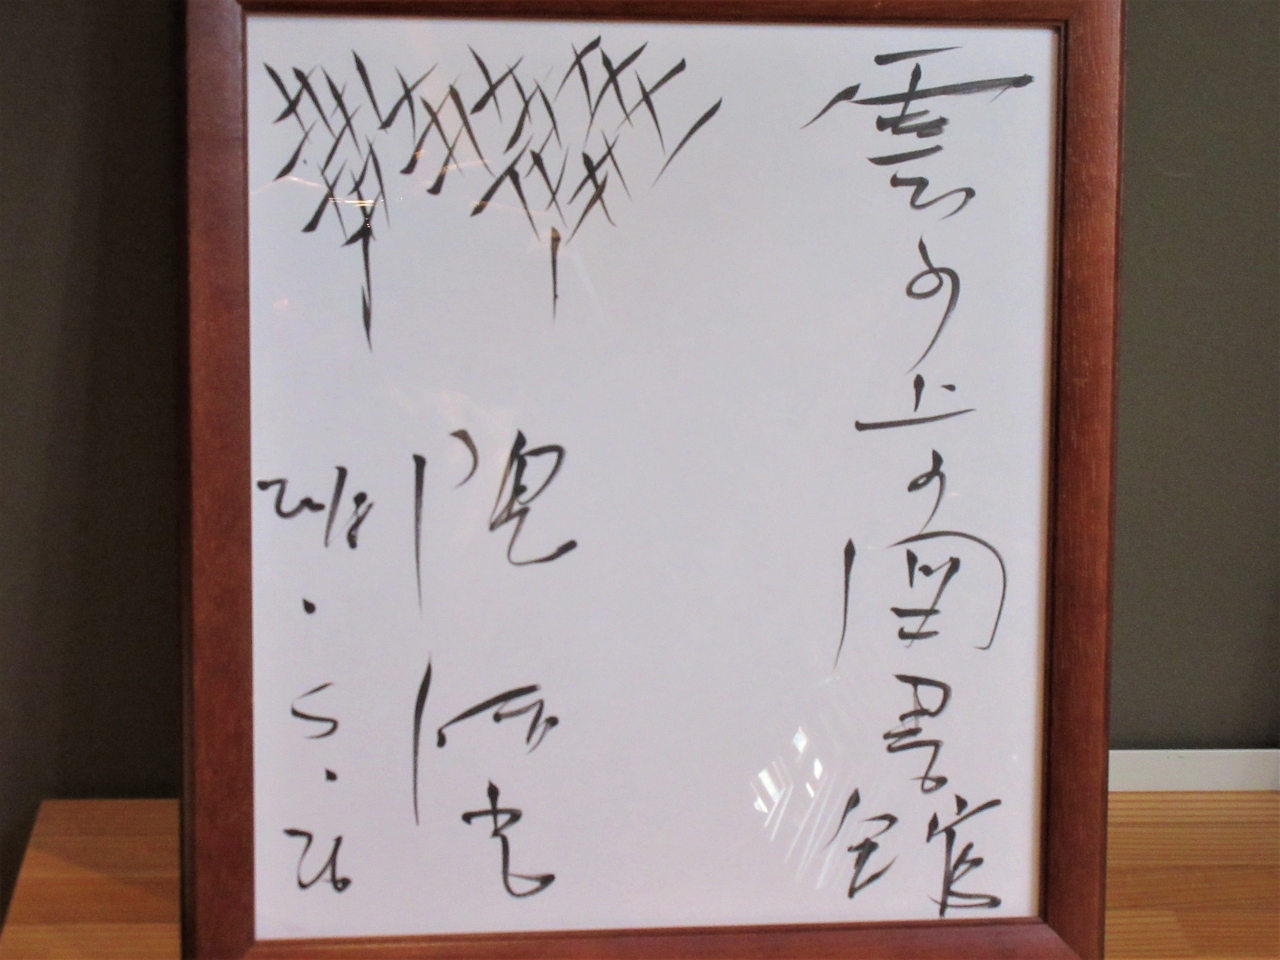 雲の上の図書館
2018.5.26